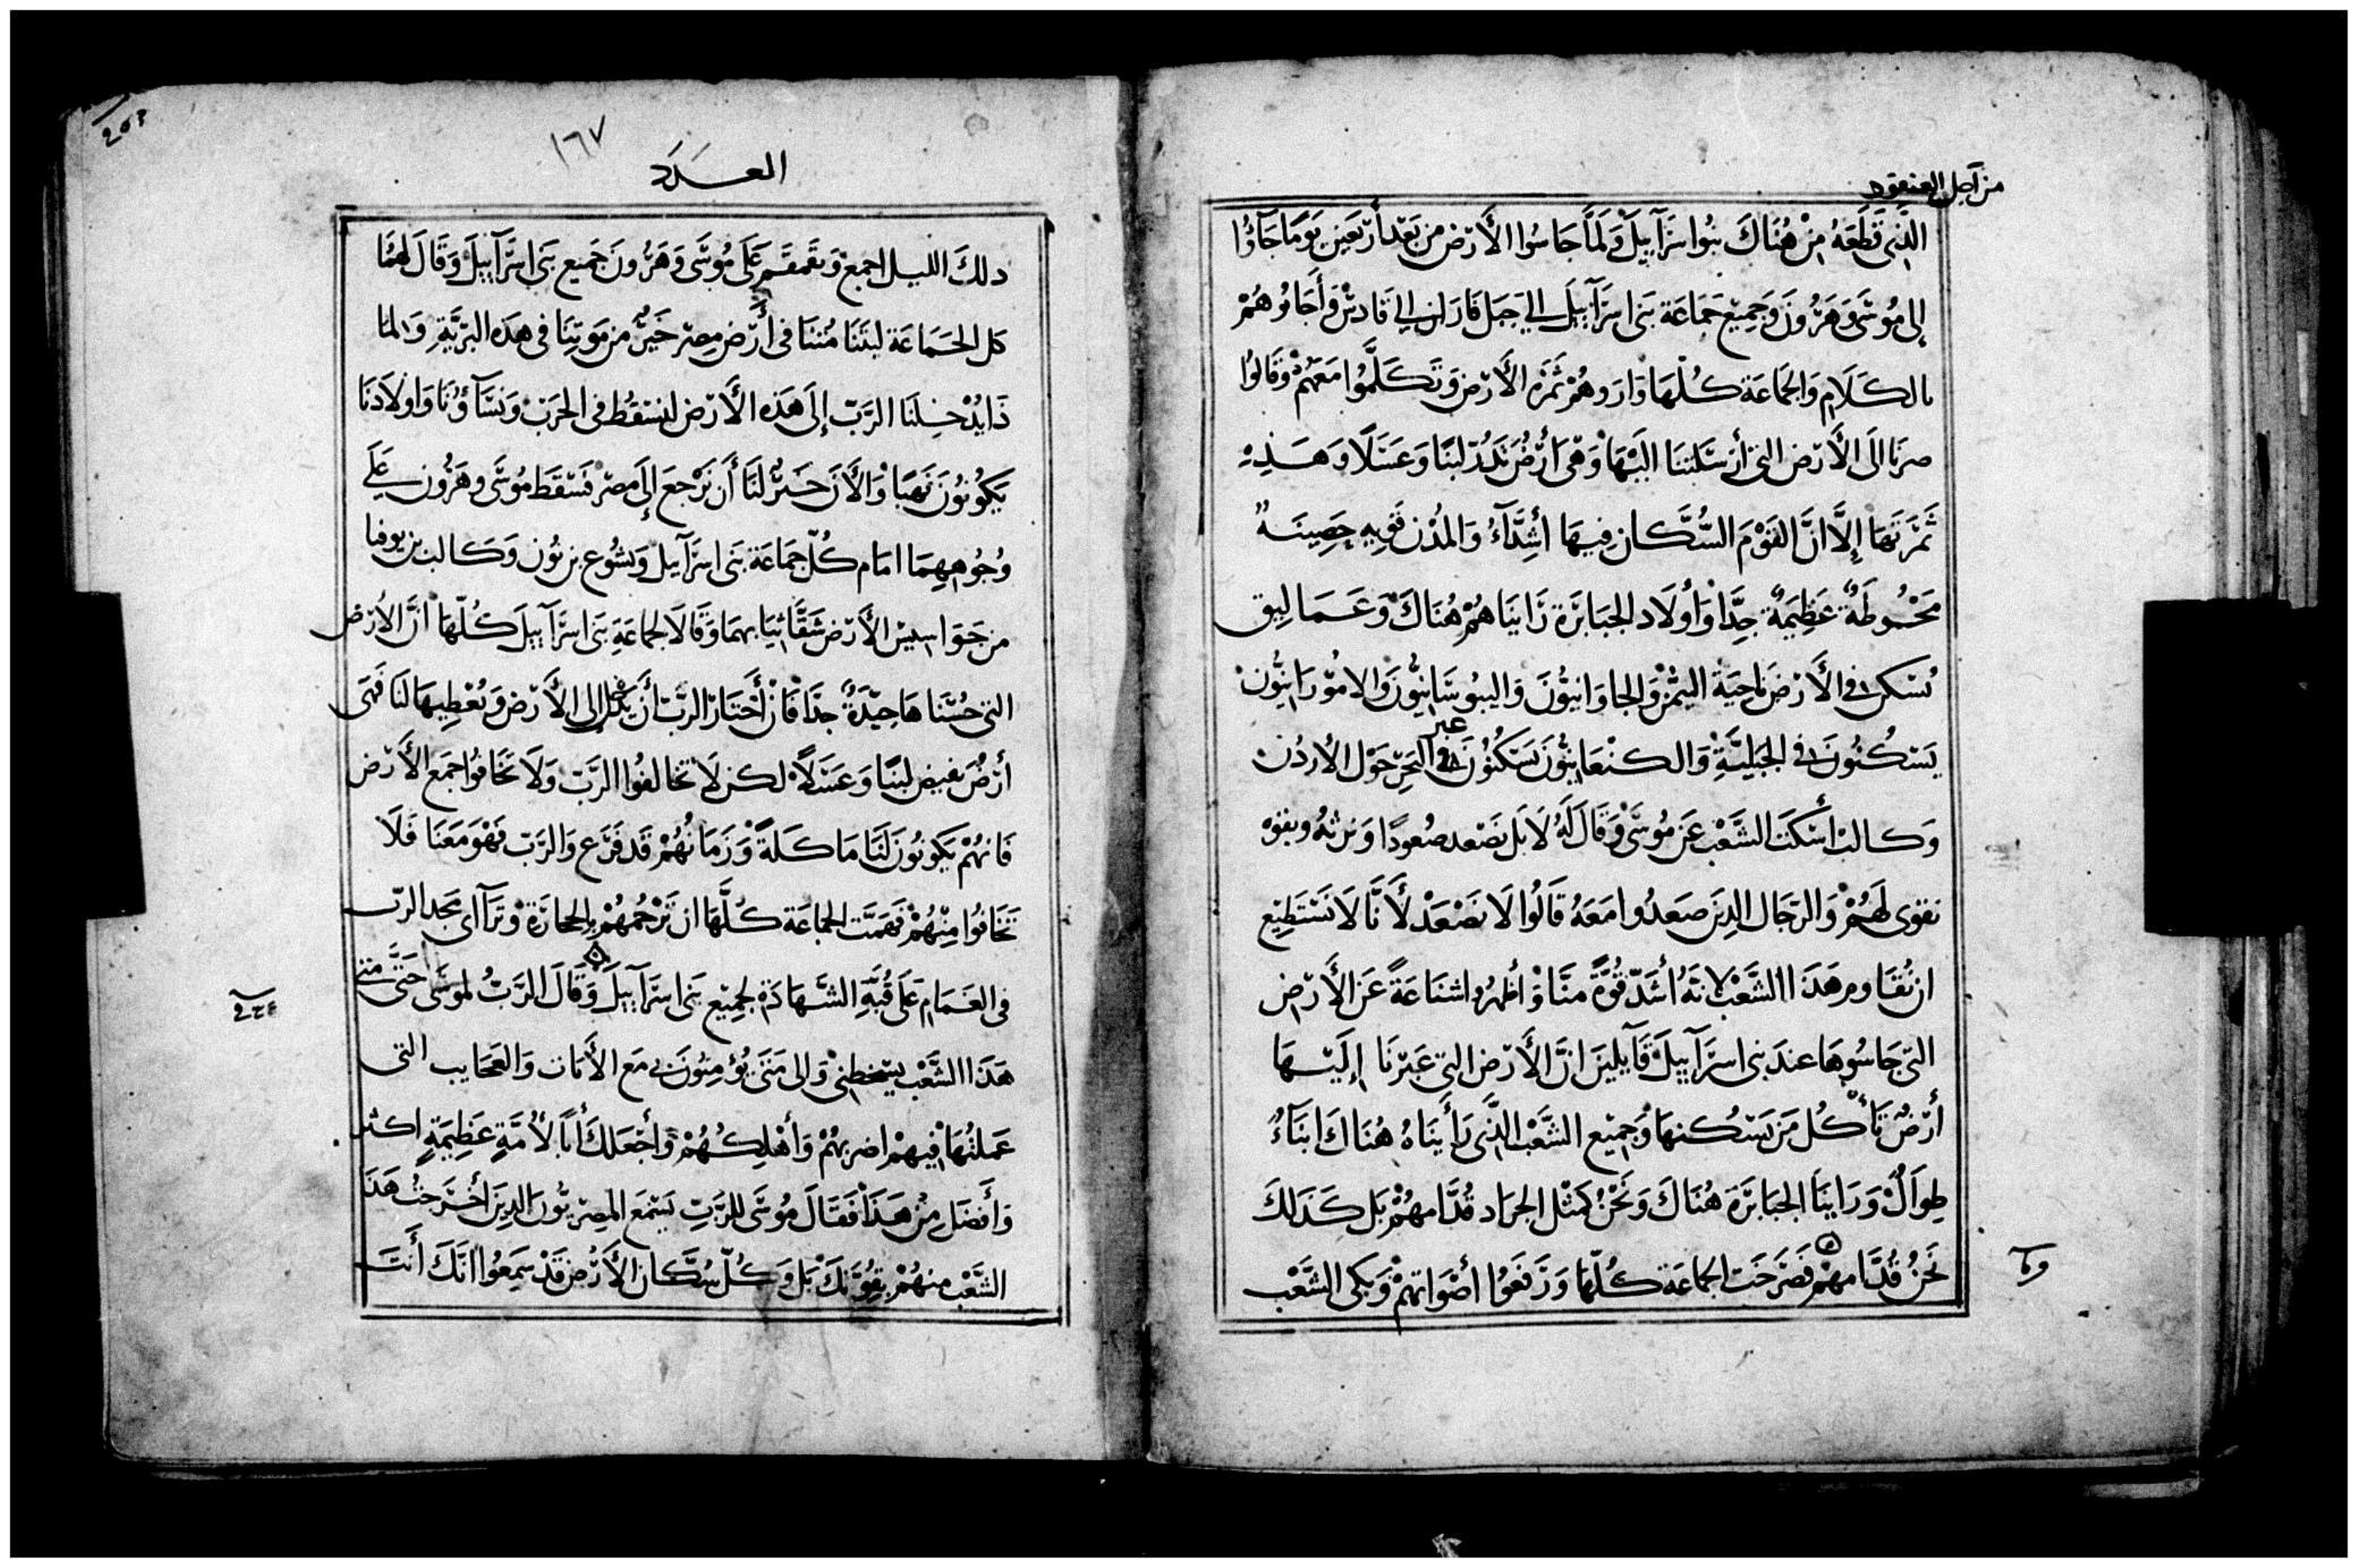 من اجل العنقود
الَّذِى قَطَعَهُ مِنْ هُنَاكَ بنُوا اسرَآييلَ وَلَمَّا جَاسُوا الأَرْض من بَعْد أَرْبَعِين يَوَمًا جَآوُا
إلى مُوسَى وَهَرُونَ وَجمِيع جَمَاعَة بَنى اسرَآييلَ الي جَبَل فَارَان الي قَادسْ وَأَجَابُوهُمْ
بالكَلَام وَالجَمَاعَة كُلّهَا وَارَوهُمْ ثَمَرَه الأَرْض وَتَكَلَّمُوا مَعَهُمْ وَقَالوُا
صرنَا الَى الأَرْض التى أرسَلتنَا اليْهَا وَهى أَرْضٌ تَدُرّ لبَنًا وَعَسَلًا وَهَذِهِ
ثَمَرَتهَا إِلَّا انَّ القَوْمَ السُّكَّان فِيهَا أَشِدَّآءُ وَالمُدْن قَويه حَصِينَةٌ
مَحْوُطَةٌ عَظِيمَةٌ جِدًّا وَأوُلَاد الجَبَابرَة رَاينَاهُمْ هُنَاكَ وَعَمَاليق
تُسْكن فى الأَرْض نَاحيَة اليَمْن وَالحاوَانيوُّنَ وَاليبوُسَانيُّونَ وَالامُوْرَانيُّونْ
يَسْكُنُونَ فى الجَبَليَّة وَالكنْعَانيُّونَ يَسْكُنُونَ عبر البَحْر حَوْل الاُردُن
وَكالبْ أسْكَتَ الشَّعْب عَن مُوسَى وَقَالَ لَهُ لَا بَل نَصْعد صُعودًا وَنرثهُ وبقوه
نقوى لَهُمْ وَالرّجَال الذِينَ صَعدُوا مَعَهُ قَالُوا لَا نَصْعَدْ لأَنَّا لَا نَسْتَطِيع
ان نُقَاوم هَذَا الشَّعْب لانَهُ أشَدّ قُوَّةً منَّا وَأظهرُوا شنَاعَةً عَن الأَرْض
التى جَاسُوهَا عندَ بنى اسرَآييلَ قَآيلينَ انَّ الأَرْض التى عَبَرْنَا إلَيْهَا
أَرْضٌ تَأْكُل مَن يَسْكُنهَا وَجَميْع الشَّعْب الَّذى رَأيْنَاهُ هُنَاكَ ابنَآءٌ
طِوَالٌ وَرَاينَا الجَبَابرَةَ هُنَاكَ وَنَحْنُ كَمثْل الجرَاد قُدَّامهُمْ بَل كَذَلكَ
نَحنُ قُدَّامهُمْ فَصَرخَت الجماعَة كُلّهَا وَرَفَعوُا أصْوَاتهمْ وَبَكى الشَّعْب
١٦٧
العَدَد
ذلكَ الليل اجمع وَتقَمقَم عَلَى مُوسَى وَهَرُونَ جَميع بَنى اسرَآييلَ وَقَالَ لَهُمَا
كل الجَمَاعَة ليتَنَا مُتنَا فى أَرْض مِصْر خَيرٌ من مَوتنَا فى هَذه البَرّيَّةِ وَلماا
ذَا يُدْخِلنَا الرَّبّ إلَى هَذه الأَرْض لنسقُط فى الحَرْب وَنسَآؤنَا وَاولَادنَا
يَكوُنوُنَ نَهبًا وَالأَن خَيرٌ لَنَا أَن نَرْجعَ إلَى مصْر فَسَقَط مُوسَى وهَرُون عَلَى
وُجُوههِمَا امَام كُلّ جمَاعَة بَنى اسرَآييل وَيشُوع بن نُون وَكَالب بن يوفنا
من جَوَاسيس الأَرْض شَقَّا ثيَابهمَا وَقَالَا لجماعَةِ بَنى اسرَآييلَ كُلّهَا انَّ الاَرْض
التى جُسْنَاهَا جيّدَةٌ جدًا فَان أَخْتَارَ الرَّبّ أَن يَدْخلنا إلى الأَرْض وَيُعْطِيهَا لنَا فَهى
أَرْضٌ تفيض لبنًا وَعَسَلًا لكن لَا تخَالفُوا الرَّبّ وَلَا تَخَافوُا جمَع الأَرْض
فَانهُمْ يَكونوُن لَنَا مَاكَلَةً وَزَمَانُهُمْ قَد فَرَغ وَالرَّبّ فَهْوَ مَعَنَا فَلَا
تَخَافوُا مِنْهُمْ فَهَمَّت الجماعَة كُلَّهَا ان تَرْجُمهُمْ بالحجَارَة وَتَرَآاى مَجد الرّب
فى الغَمَام عَلَى قُبَّةِ الشَّهَادَة لجَمِيْع بَنى اسرَآييلَ وَقَالَ الرَّبُّ لموسَى حَتَّى متى
هَذَا الشَّعْب يسْخطنىْ وَالى مَتَى لا يُؤمنوُنَ بى مَع الأَيات وَالعَجَايب التى
عَملتُهَا فيهمْ اضربهُمْ وَأهْلِكُهُمْ وَأجْعَلكَ أنَا لأُمَّةٍ عَظِيمَةٍ اكثر
وَأَفضَل مِنْ هَذَا فَقَالَ مُوسَى للرَّبّ يَسْمَع المصْريُّونَ الذينَ أخْرَجتُ هَذَا
الشَّعْب منهُمْ بقُوَّتكَ بَل وَكُلّ سُكَّان الأَرْض قَدْ سَمعُوا انَّكَ أَنتَ